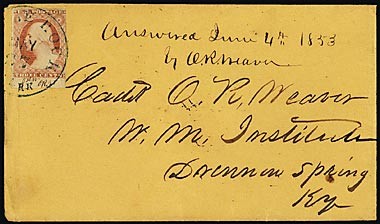 Answered June 4th 1853
by O R Weaver
THREE CENTS
Cadt O. R. Weaver
W. M. Institute
Drennon Spring
Ky